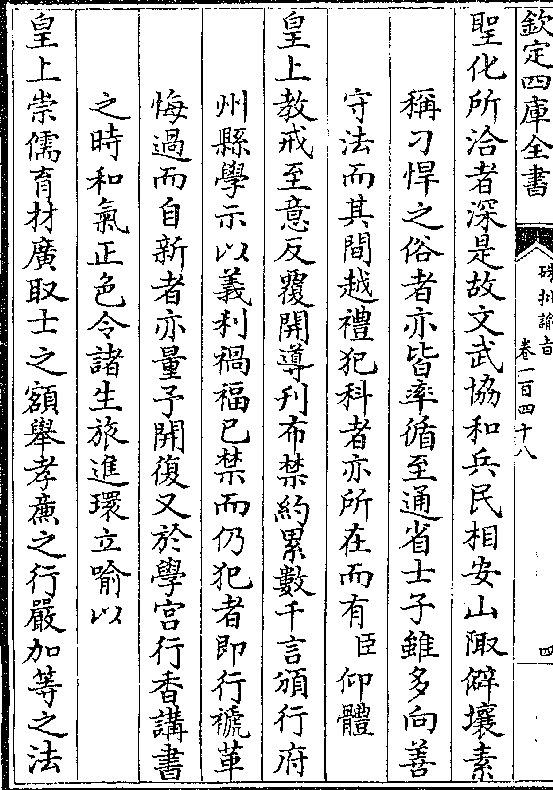 欽定四庫全書
硃批諭旨 卷一百四十八 四
聖化所洽者深是故文武協和兵民相安山陬僻壤素
稱刁悍之俗者亦皆率循至通省士子雖多向善
守法而其間越禮犯科者亦所在而有臣仰體
皇上教戒至意反覆開導刋布禁約累數千言頒行府
州縣學示以義利禍福已禁而仍犯者即行褫革
悔過而自新者亦量予開復又於學宮行香講書
之時和氣正色令諸生旅進環立喻以
皇上崇儒育材廣取士之額舉孝廉之行嚴加等之法